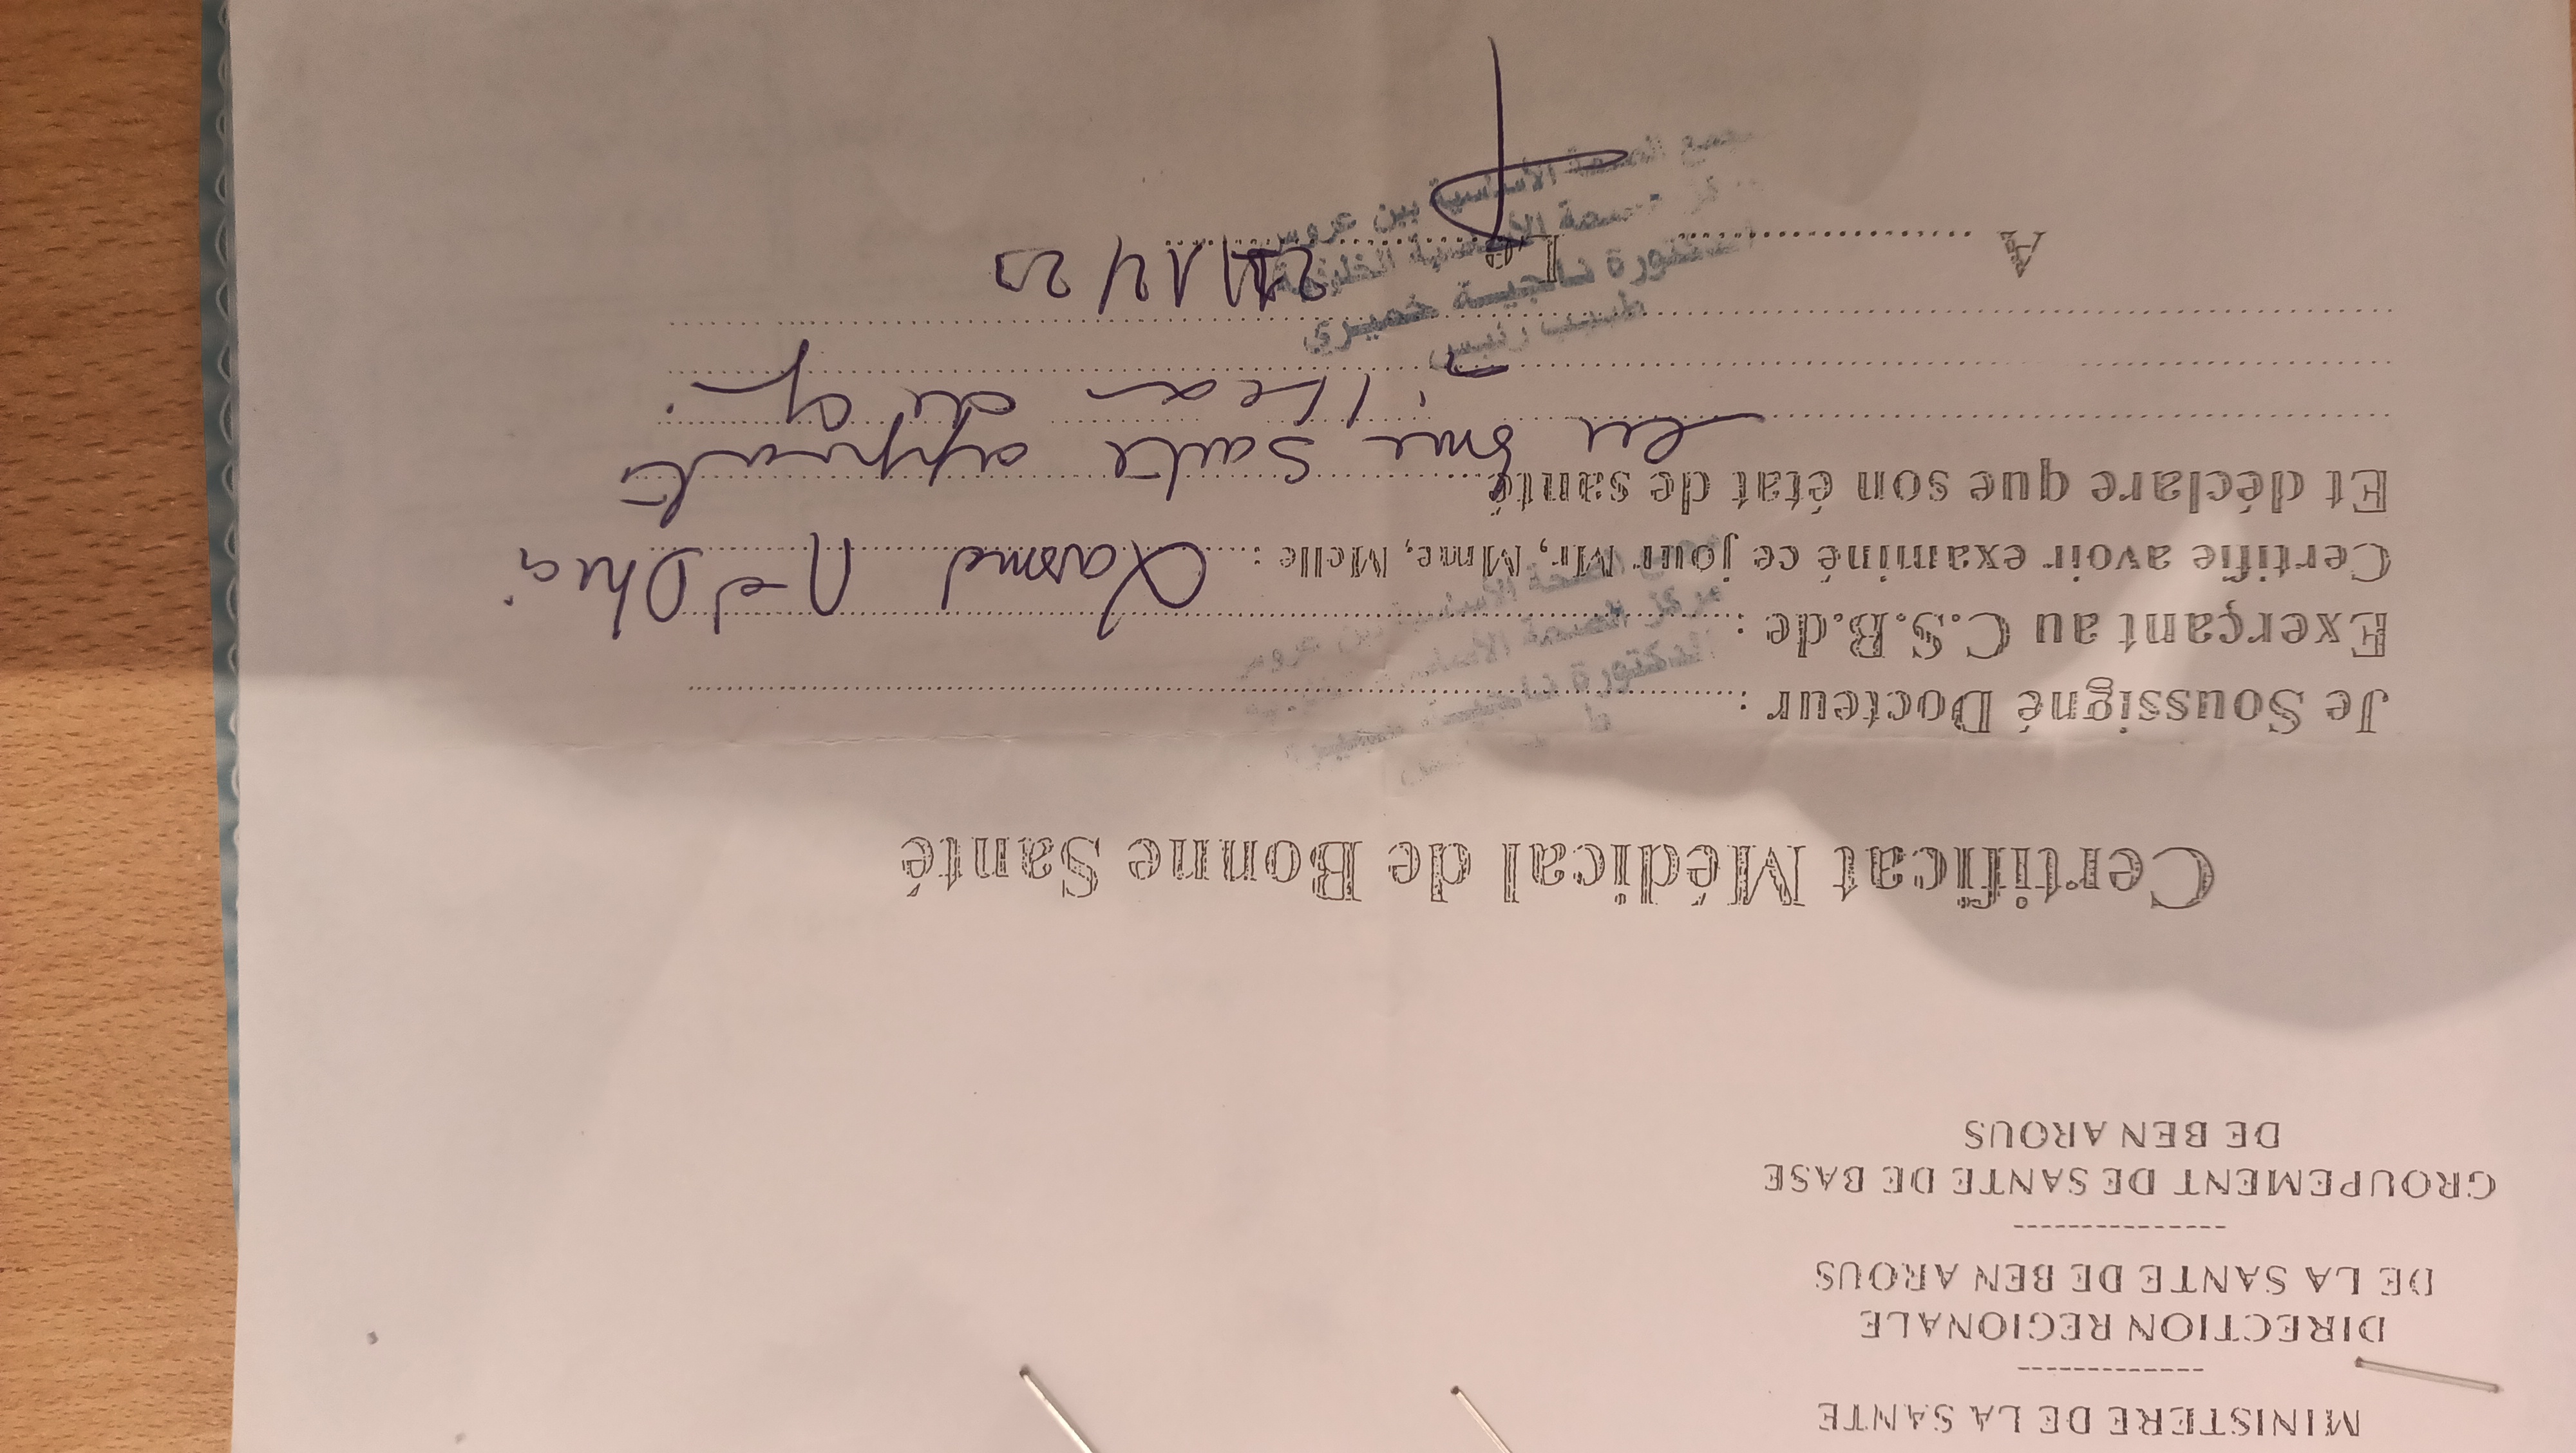 MINISTERE DE LA SANTE
-------------
DIRECTION REGIONALE
DE LA SANTE DE BEN AROUS
---------------
GROUPEMENT DE SANTE DE BASE
DE BEN AROUS
Certificat Médical de Bonne Santé
Je Soussigné Docteur :
الدكتورة ناجية
Exerçant au C.S.B.de :
مركز الصحة الأساسية
الصحة الأساسية بين عروس
Certifie avoir examiné ce jour Mr, Mme, Melle :
Et déclare que son état de santé
en bne santé apparente
طبيب رئيس
الدكتورة ناجية خميري
A Le
مجمع الصحة الأساسية بين عروس